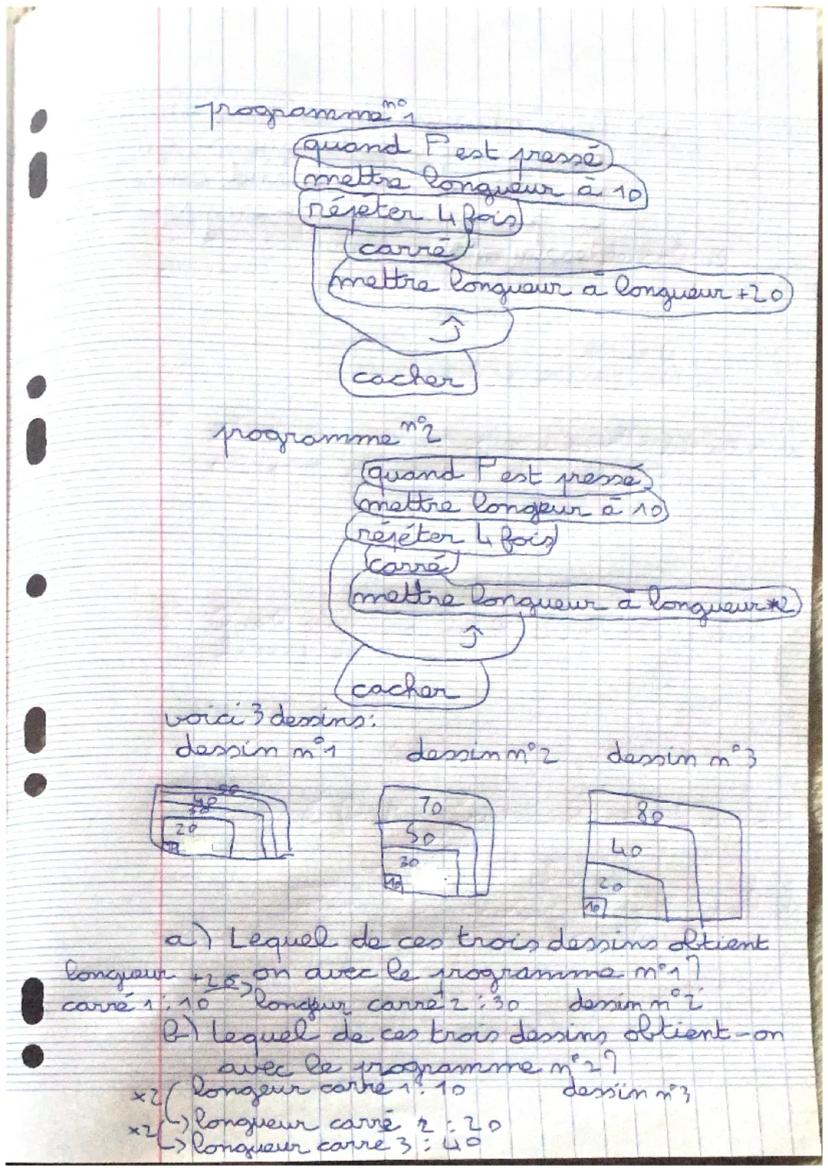 programme n°1
quand P est pressé
mettre longueur à 10
répéter 4 fois
carré
mettre longueur à longueur +20
cacher
programme n°2
quand P est pressé
mettre longeur à 10
répéter 4 fois
carré
mettre longueur à longueur*2
cacher
voici 3 dessins:
dessin n°1 dessin n°2 dessin n°3
20
70
50
30
10
80
40
20
10
a) Lequel de ces trois dessins obtient
on avec le programme n°1?
longueur +20
carré 1 : 10 longueur carré 2 : 30 dessin n°2
b) lequel de ces trois dessins obtient-on
avec le programme n°2?
x2 longeur carré 1 : 10 dessin n°3
x2 longueur carré 2 : 20
longueur carré 3 : 40